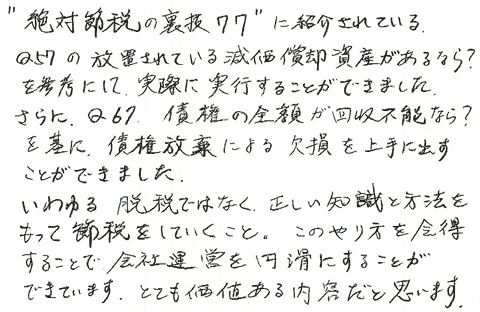 "絶対節税の裏技77"に紹介されている.
Q57の放置されている減価償却資産があるなら?
を参考にして,実際に実行することができました.
さらに,Q67.債権の全額が回収不能なら?
を基に,債権放棄による欠損を上手に出す
ことができました.
いわゆる脱税ではなく.正しい知識と方法を
もって節税をしていくこと。このやり方を会得
することで会社運営を円滑にすることが
できています.とても価値ある内容だと思います.